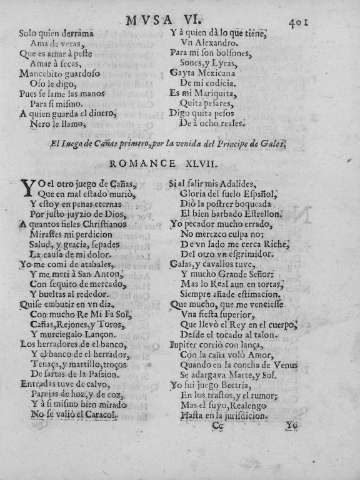 MVSA VI.
401
Solo quien derrama
Ama de veras,
Que es amar à peste
Amar à secas,
Mancebito guardoso
Oso le digo,
Pues se lame las manos
Para si mismo.
A quien guarda el dinero,
Nero le llamo,
Y à quien dà lo que tiene,
Vn Alexandro.
Para mi son bolsones,
Sones, y Lyras,
Gayta Mexicana
De mi codicia.
Es mi Mariquita,
Quita pesares,
Digo quita pesos
De à ocho reales.
El Iuego de Cañas primero, por la venida del Principe de Gales.
ROMANCE XLVII.
YO el otro juego de Cañas,
Que en mal estado murió,
Y estoy en penas eternas
Por justo juyzio de Dios,
A quantos fieles Christianos
Mirastes mi perdicion
Salud, y gracia, sepades
La causa de mi dolor.
Yo me comi de atabales,
Y me meti à San Anton,
Con sequito de mercado,
Y bueltas al rededor.
Quise embutir en vn dia,
Con mucho Re Mi Fa Sol,
Cañas, Rejones, y Toros,
Y murciegalo Lançon.
Los herradores de el banco,
Y el banco de el herrador,
Tenaça, y martillo, troços
De sartas de la Passion.
Entradas tuve de calvo,
Parejas de hoz, y de coz,
Y à si mismo bien mirado
No se valió el Caracol.
Si al salir mis Adalides,
Gloria del suelo Español,
Diò la postrer boqueada
El bien barbado Estrellon.
Yo pecador mucho errado,
No merezco culpa no;
De vn lado me cerca Riche,
Del otro vn esgrimidor.
Galas, y cavallos tuve,
Y mucho Grande Señor;
Mas lo Real aun en tortas,
Siempre añade estimacion.
Que mucho, que me venciesse
Vna fiesta superior,
Que llevó el Rey en el cuerpo,
Desde el tocado al talon.
Iupiter corrió con lança,
Con la caña voló Amor,
Quando en la concha de Venus
Se adargava Marte, y Sol.
Yo fui juego Beetria,
En los trastos, y el rumor;
Mas el suyo, Realengo
Hasta en la jurisdicion.
Cc
Yo